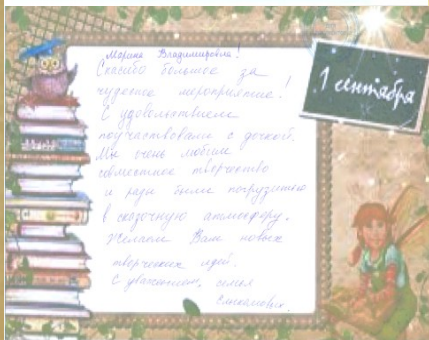 Марина Владимировна!
Спасибо большое за
чудесное мероприятие!
С удовольствием
поучаствовали с дочкой.
Мы очень любим
совместное творчество
и рады были погрузиться
в сказочную атмосферу.
Желаем Вам новых
творческих идей.
С уважением, семья
1 сентября